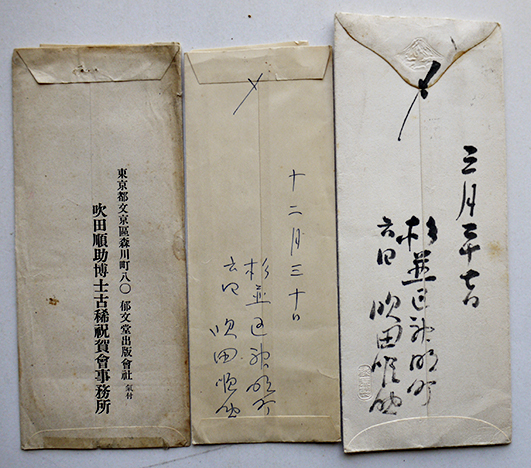 東京都文京區森川町八〇 郁文堂出版會社 氣付
吹田順助博士古稀祝賀會事務所
十二月三十日
杉並区神明町
六四
吹田順助
三月二十七日
杉並区神明町
六四
吹田順助